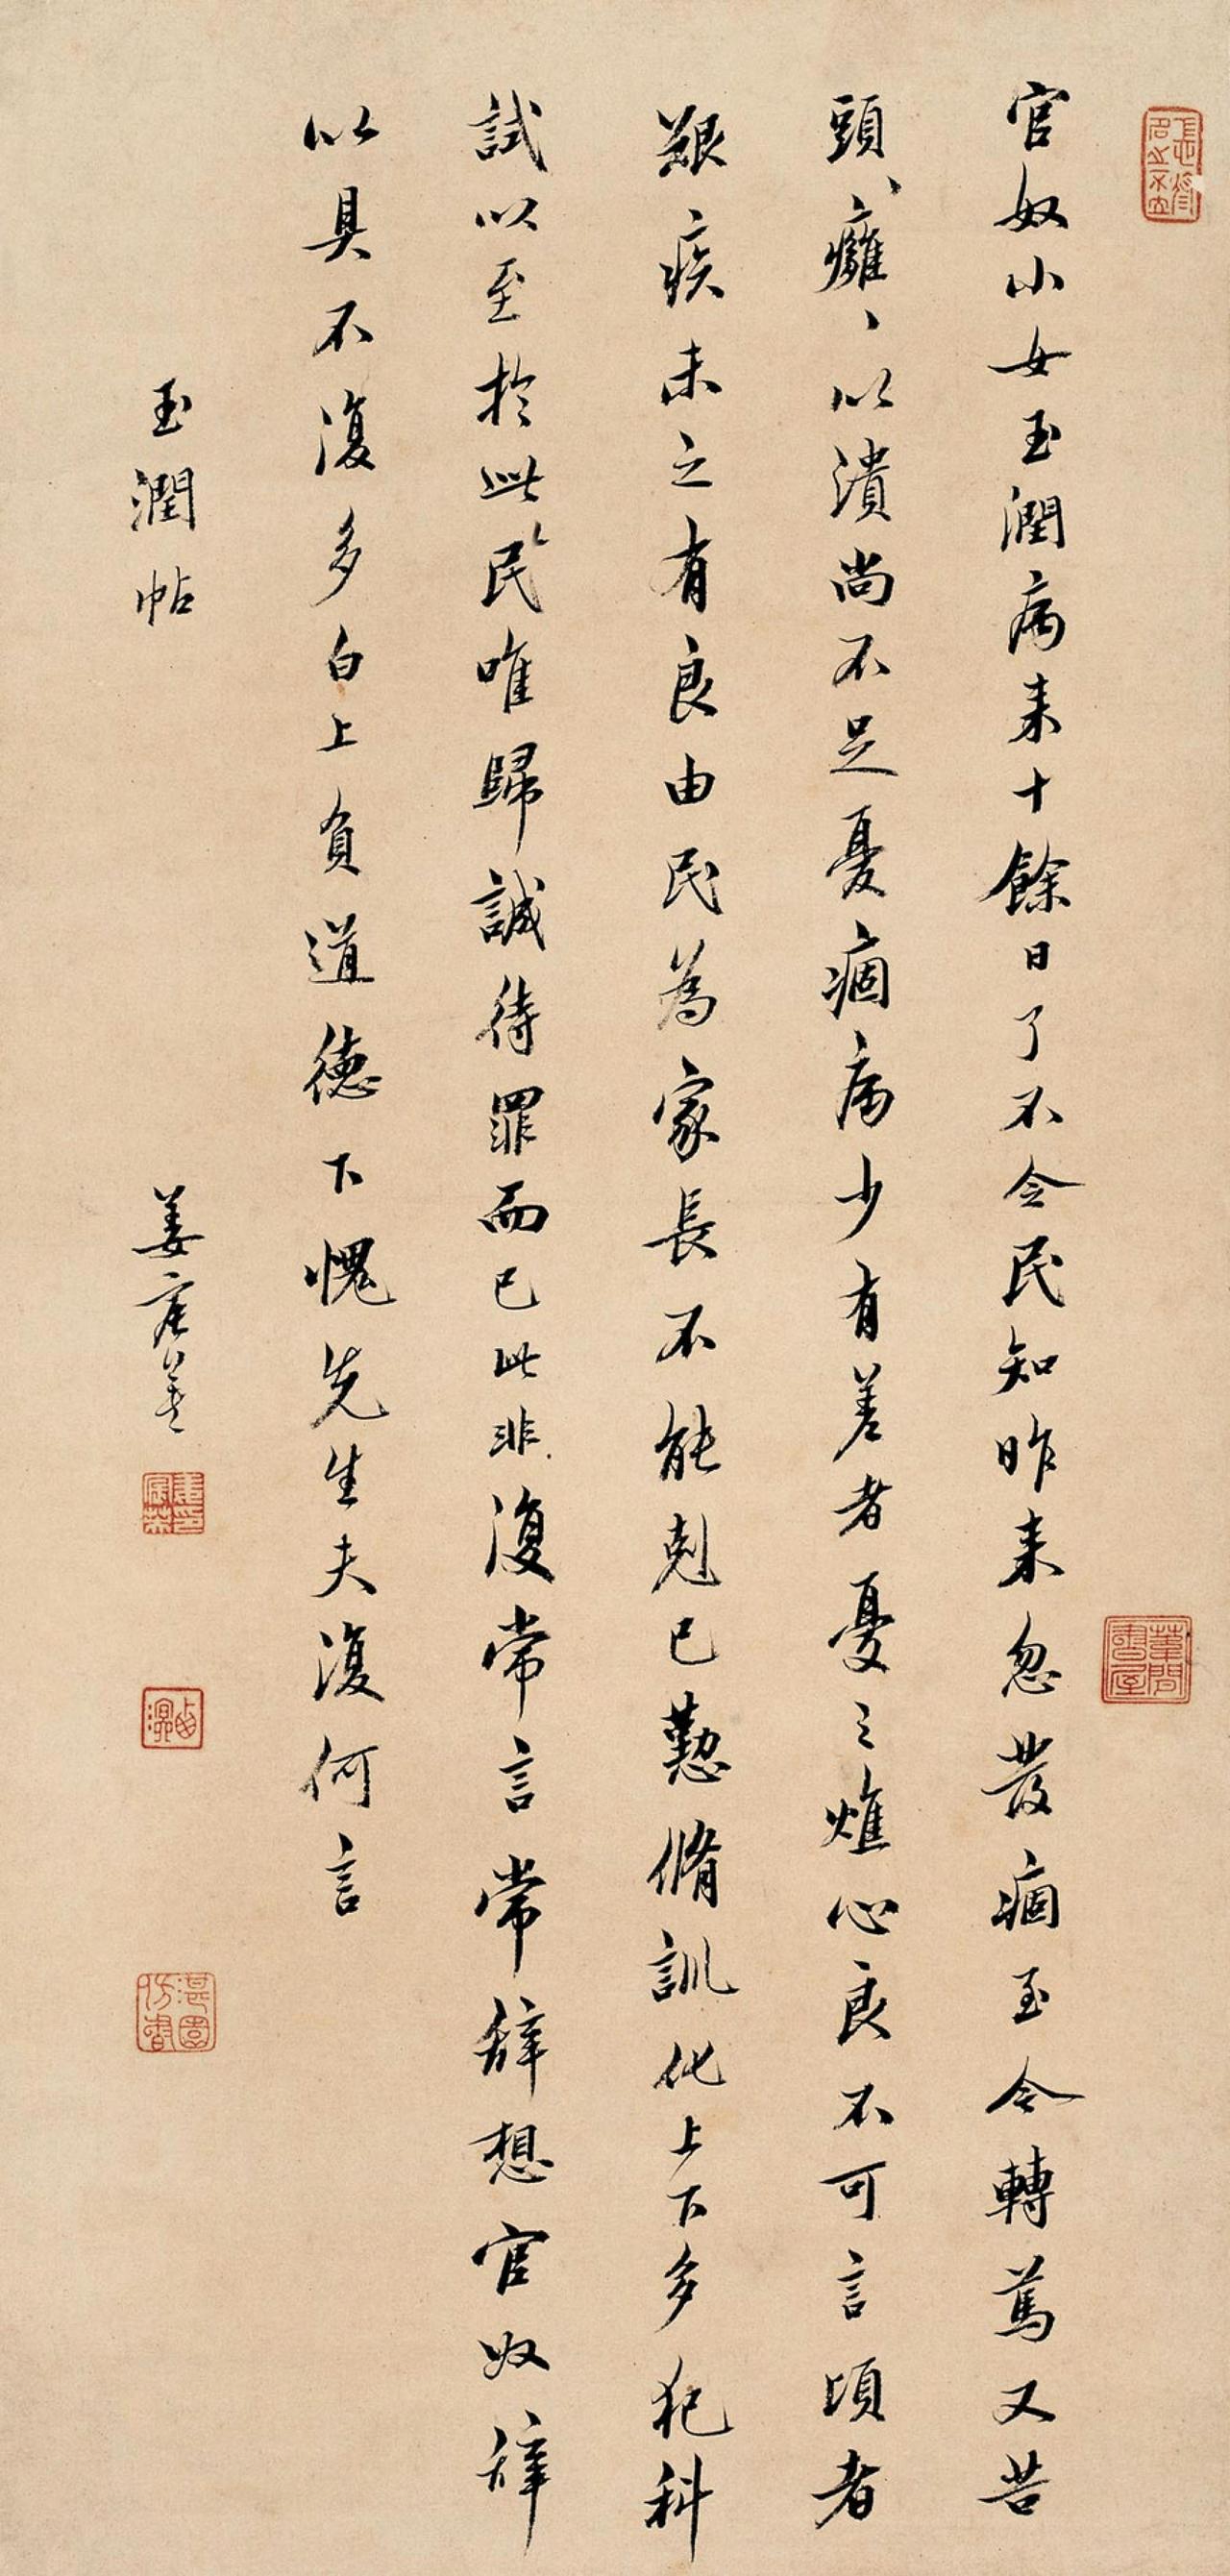 官奴小女玉潤病来十餘日了不令民知昨来忽發痼至今轉篤又苦
頭、癰、以潰尚不足憂痼病少有差者憂之燋心良不可言頃者
艱疾未之有良由民為家長不能剋己懃脩訓化上下多犯科
試以至於此民唯歸誠待罪而已此非復常言常辭想官奴辭
以具不復多白上負道德下愧先生夫復何言
玉潤帖
姜宸英
葦間書屋
西溟
湛園仿書